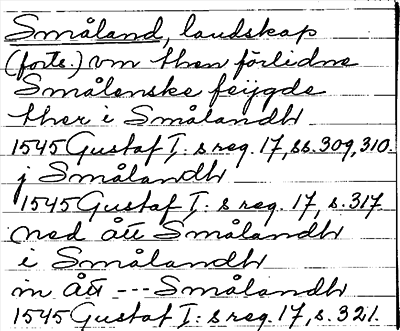 Småland, landskap
(forts.) vm then förlidne
Smålenske feijgde
ther i Smålandh
1545 Gustaf I: s reg. 17, ss. 309, 310.
j Smålandh
1545 Gustaf I: s reg. 17, s. 317
ned ått Smålandh
i Smålandh
in ått --- Smålandh
1545 Gustaf I: s reg. 17, s. 321.